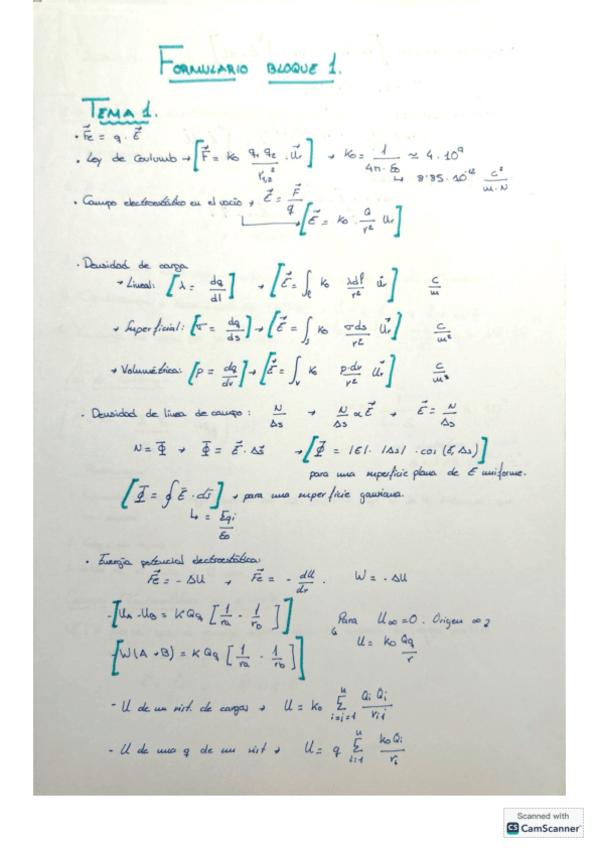 FORMULARIO BLOQUE 1.
TEMA 1.
• F⃗e = q · E⃗
• Ley de Coulomb → [F⃗ = K₀ q₁ q₂ / r₁,₂² · u⃗r] → K₀ = 1 / 4π · ε₀ ≃ 9 · 10⁹
↳ 8'85 · 10⁻¹² C² / m · N
• Campo electrostático en el vacío → E⃗ = F⃗ / q
[E⃗ = K₀ · Q / r² u⃗r]
• Densidad de carga
→ Lineal: [λ = dq / dl] → [E⃗ = ∫ℓ K₀ λdl / r² u⃗r] C / m
→ Superficial: [σ = dq / ds] → [E⃗ = ∫s K₀ σds / r² u⃗r] C / m²
→ Volumétrica: [ρ = dq / dv] → [E⃗ = ∫v K₀ ρ·dv / r² u⃗r] C / m³
• Densidad de línea de campo: N / Δs → N / Δs ∝ E⃗ → E⃗ = N / Δs
N = Φ → Φ = E⃗ · Δs⃗ → [Φ = |E| · |Δs| · cos (E, Δs)]
para una superficie plana de E uniforme.
[Φ = ∮ E⃗ · ds⃗] → para una superficie gausiana.
↳ = Σqi / ε₀
• Energía potencial electrostática
F⃗e = - ΔU , F⃗e = - dU / dr . W = - ΔU
- [UA - UB = K Q q [1 / ra - 1 / rb]]
Para U∞ = 0. Origen ∞
U = K₀ Qq / r
- [W(A→B) = K Q q [1 / ra - 1 / rb]]
- U de un sist. de cargas → U = K₀ Σ Qi Qj / ri,j
- U de una q de un sist → U = q Σ i=1 K₀ Qi / ri
Scanned with
CS CamScanner